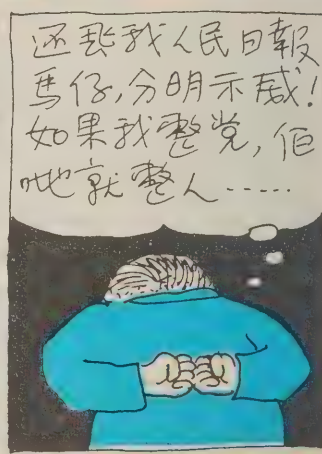 还恐我人民日報
馬仔,分明示威!
如果我整党,佢
哋就整人……